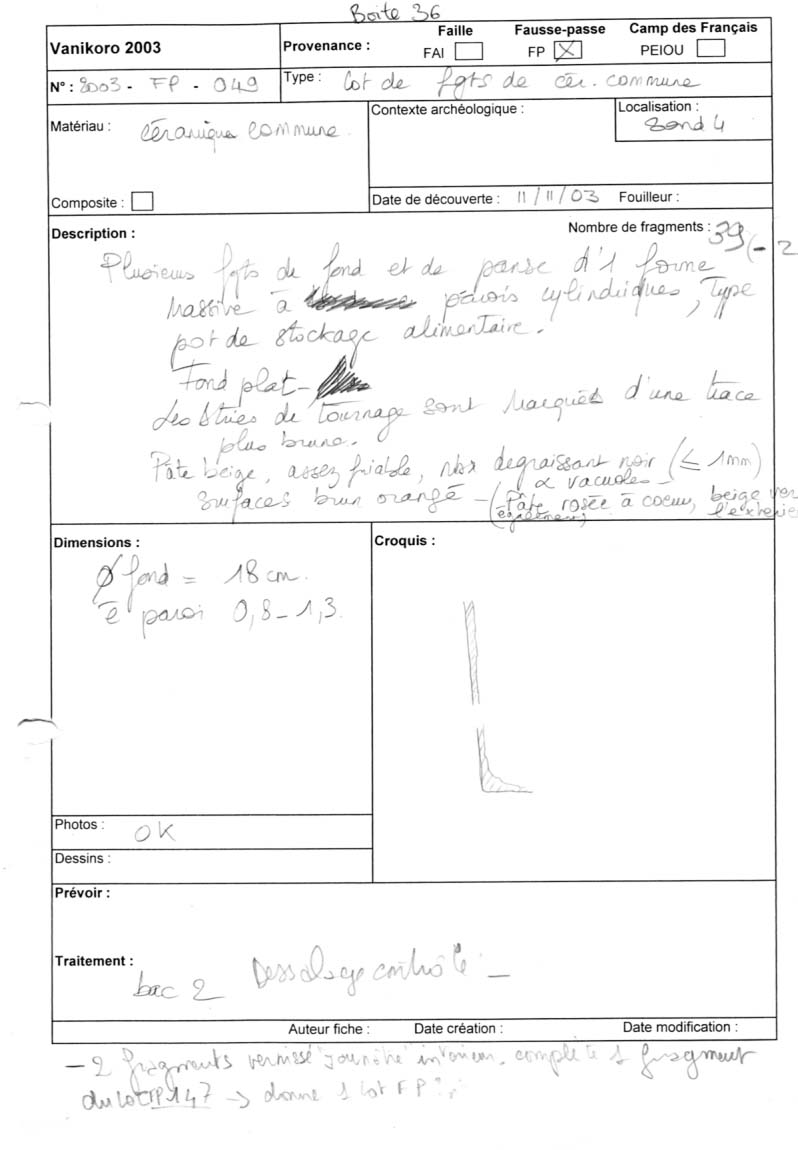 Boite 36
Vanikoro 2003
Provenance :
Faille
FAI
Fausse-passe
FP X
Camp des Français
PEIOU
N° : 2003 - FP - 049
Type : Lot de fgts de cér. commune
Matériau : Céramique commune.
Composite :
Contexte archéologique :
Localisation :
Sond 4
Date de découverte : 11/11/03 Fouilleur :
Description :
Nombre de fragments : 39 (- 2
Plusieurs fgts de fond et de panse d'1 forme
massive à parois cylindriques, Type
pot de stockage alimentaire.
Fond plat -
Les stries de tournage sont marquées d'une trace
plus brune.
Pâte beige, assez friable, nbx degraissant noir (≤ 1mm)
& vacuoles -
Surfaces brun orangé - (Pâte rosée à coeur, beige vers
(également) l'exterie
Dimensions :
Ø fond = 18 cm.
e paroi 0,8 - 1,3.
Croquis :
Photos : OK
Dessins :
Prévoir :
Traitement :
bac 2 Dessalage contrôlé -
Auteur fiche : Date création : Date modification :
- 2 fragments vernissé complète 1 fragment
du lot FP 147 → donne 1 lot FP